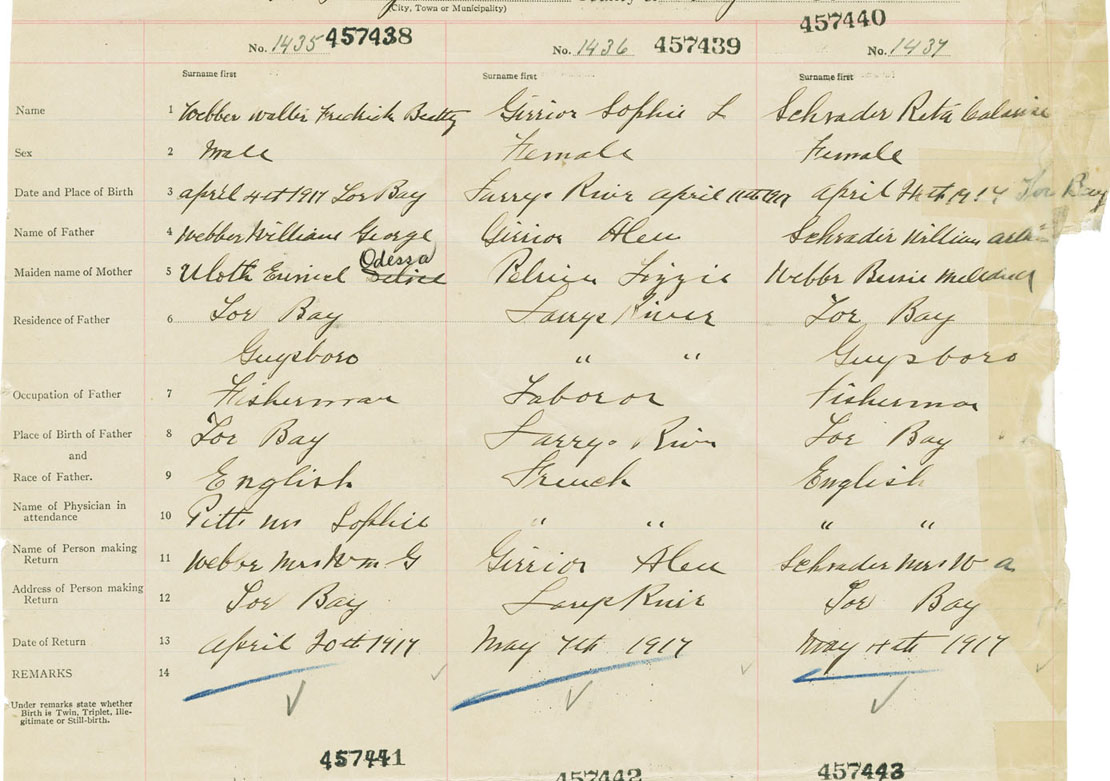 (City, Town or Municipality)
457440
No. 1435 457438 No. 1436 457439 No. 1437
Surname first Surname first Surname first
Name 1 Webber Fredrick Beatty Girrior Sophie L Schrader Reta
Sex 2 Male Female Female
Date and Place of Birth 3 april 4th 1917 Tor Bay Larrys River april 11th 1917 april 1917 Tor Bay
Name of Father 4 Webber William George Girrior Alex Schrader William
Odessa
Maiden name of Mother 5 Uloth Pelrien Lizzie Webber Bessie
Residence of Father 6 Tor Bay Larrys River Tor Bay
Guysboro " " Guysboro
Occupation of Father 7 Fisherman Laboror Fisherman
Place of Birth of Father 8 Tor Bay Larrys River Tor Bay
and
Race of Father. 9 English French English
Name of Physician in
attendance 10 Pitts Mrs Sophie " " " "
Name of Person making
Return 11 Webber Mrs Wm G Girrior Alex Schrader Mrs W a
Address of Person making
Return 12 Tor Bay Larrys River Tor Bay
Date of Return 13 April 20th 1917 May 1917 May 4th 1917
REMARKS 14
Under remarks state whether
Birth is Twin, Triplet, Ille-
gitimate or Still-birth.
457441 457442 457443